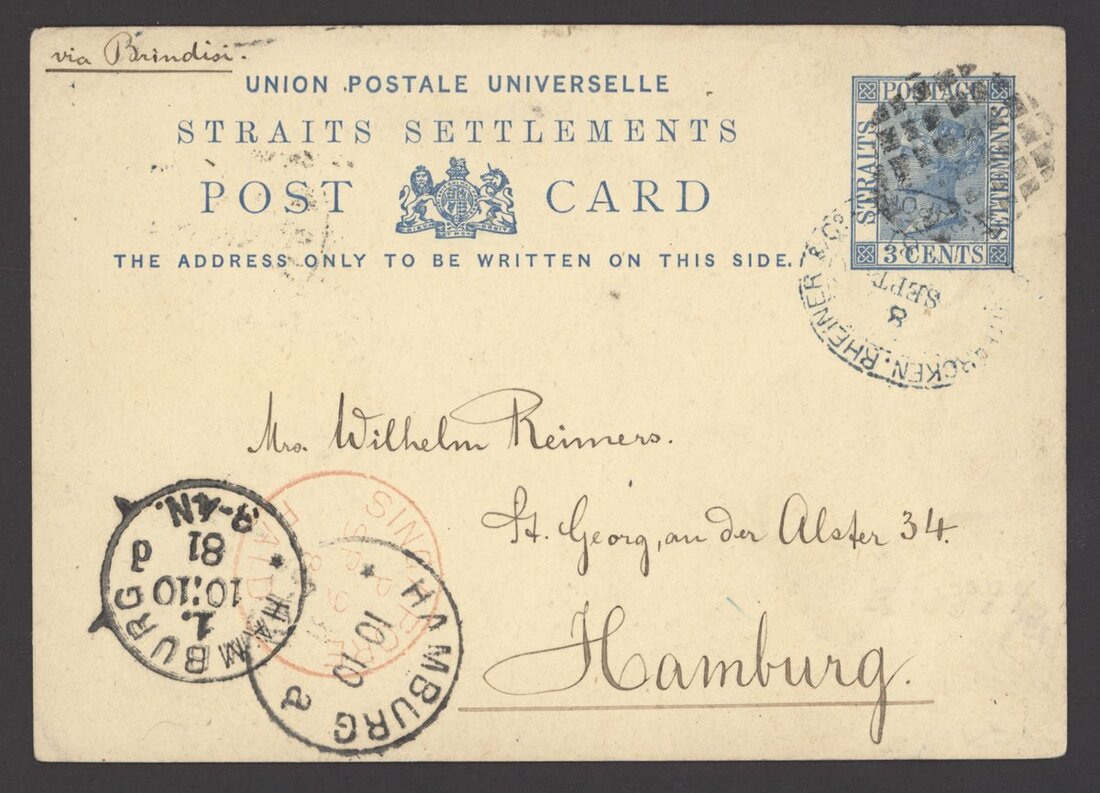 via Brindisi.
UNION POSTALE UNIVERSELLE
STRAITS SETTLEMENTS
POST CARD
THE ADDRESS ONLY TO BE WRITTEN ON THIS SIDE.
POSTAGE
STRAITS
SETTLEMENTS
3 CENTS
RCKEN. RHEINER & Co
8
SEPT
Mrs. Wilhelm Reimers.
St. Georg, an der Alster 34.
Hamburg.
SINGAPORE
PAID
HAMBURG d
1.
10:10
81
8-9N.
HAMBURG a
10 10